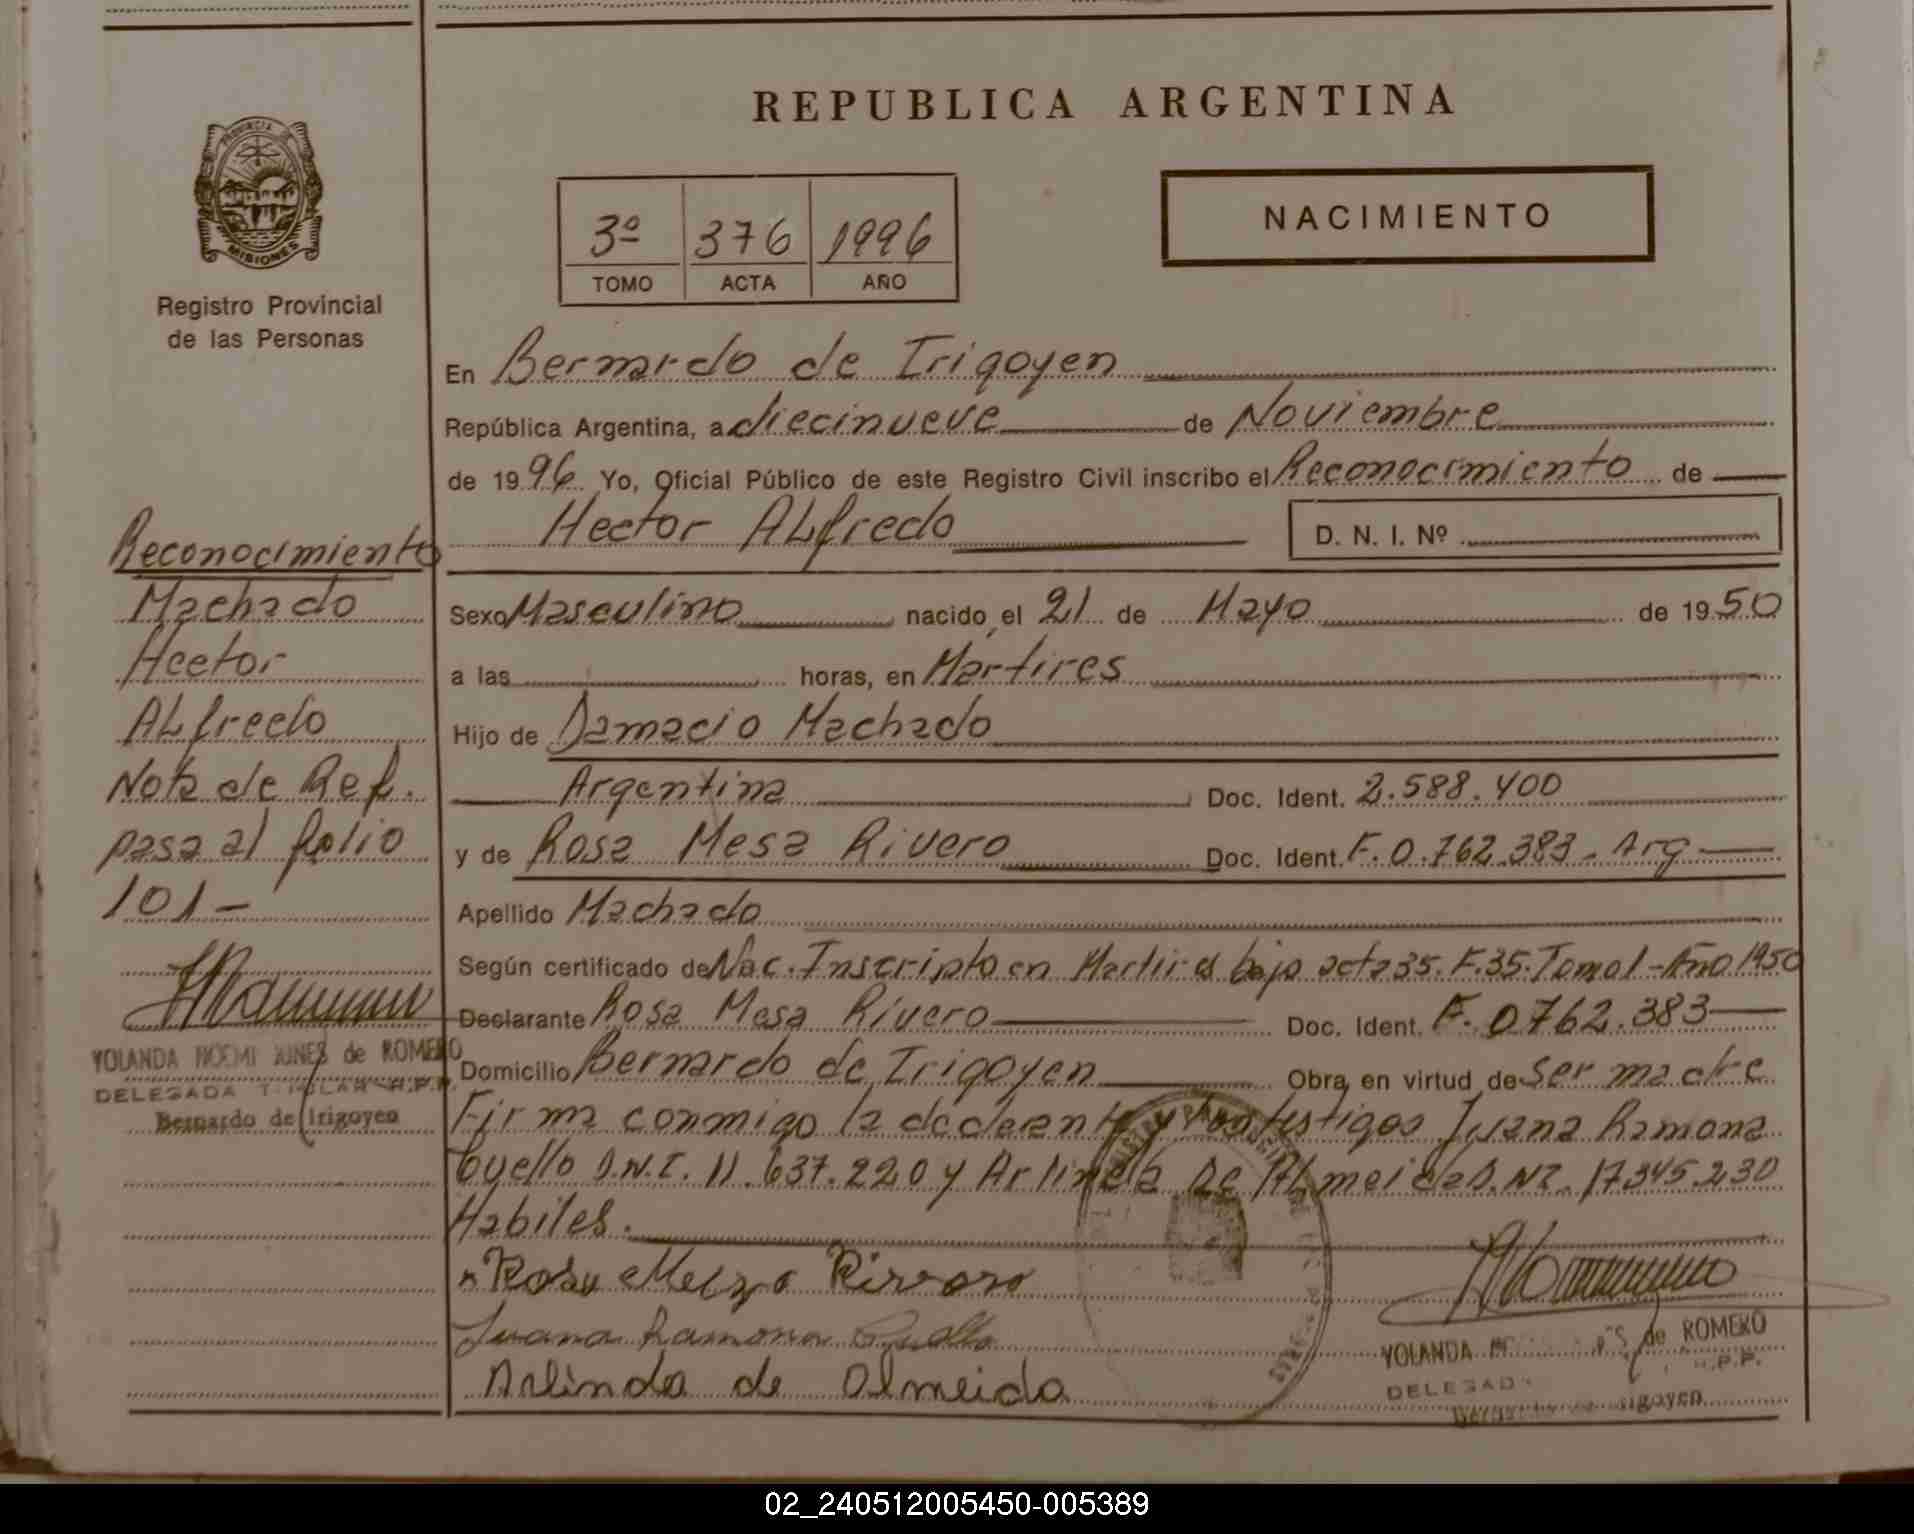 REPUBLICA ARGENTINA
PROVINCIA DE
MISIONES
Registro Provincial
de las Personas
3º 376 1996
TOMO ACTA AÑO
NACIMIENTO
En Bernardo de Irigoyen
República Argentina, a diecinueve de Noviembre
de 1996 Yo, Oficial Público de este Registro Civil inscribo el Reconocimiento de
Hector ALfredo D. N. I. Nº
Sexo Masculino nacido el 21 de Mayo de 1950
a las horas, en Martires
Hijo de Damacio Machado
Argentina Doc. Ident. 2.588.400
y de Rosa Mesa Rivero Doc. Ident. F. 0.762.383 - Arg
Apellido Machado
Según certificado de Nac. Inscripto en Martires bajo acta 35. F.35. Tomo 1 - Año 1950
Declarante Rosa Mesa Rivero Doc. Ident. F. 0762.383
Domicilio Bernardo de Irigoyen Obra en virtud de ser madre
Firma conmigo la declarante y los testigos Juana Ramona
Cuello D.N.I. 11.637.220 y Arlinda De ALmeida D.NI. 17.345.230
Habiles.
Rosa Meza Rivero
Juana Ramona Cuello
Arlinda de Almeida
YOLANDA de ROMERO
DELEGADA .P.P.
Irigoyen
Reconocimiento
Machado
Hector
ALfredo
Nota de Ref.
pasa al folio
101 -
YOLANDA NOEMI de ROMERO
DELEGADA TITULAR R.P.P.
Bernardo de Irigoyen
02_240512005450-005389